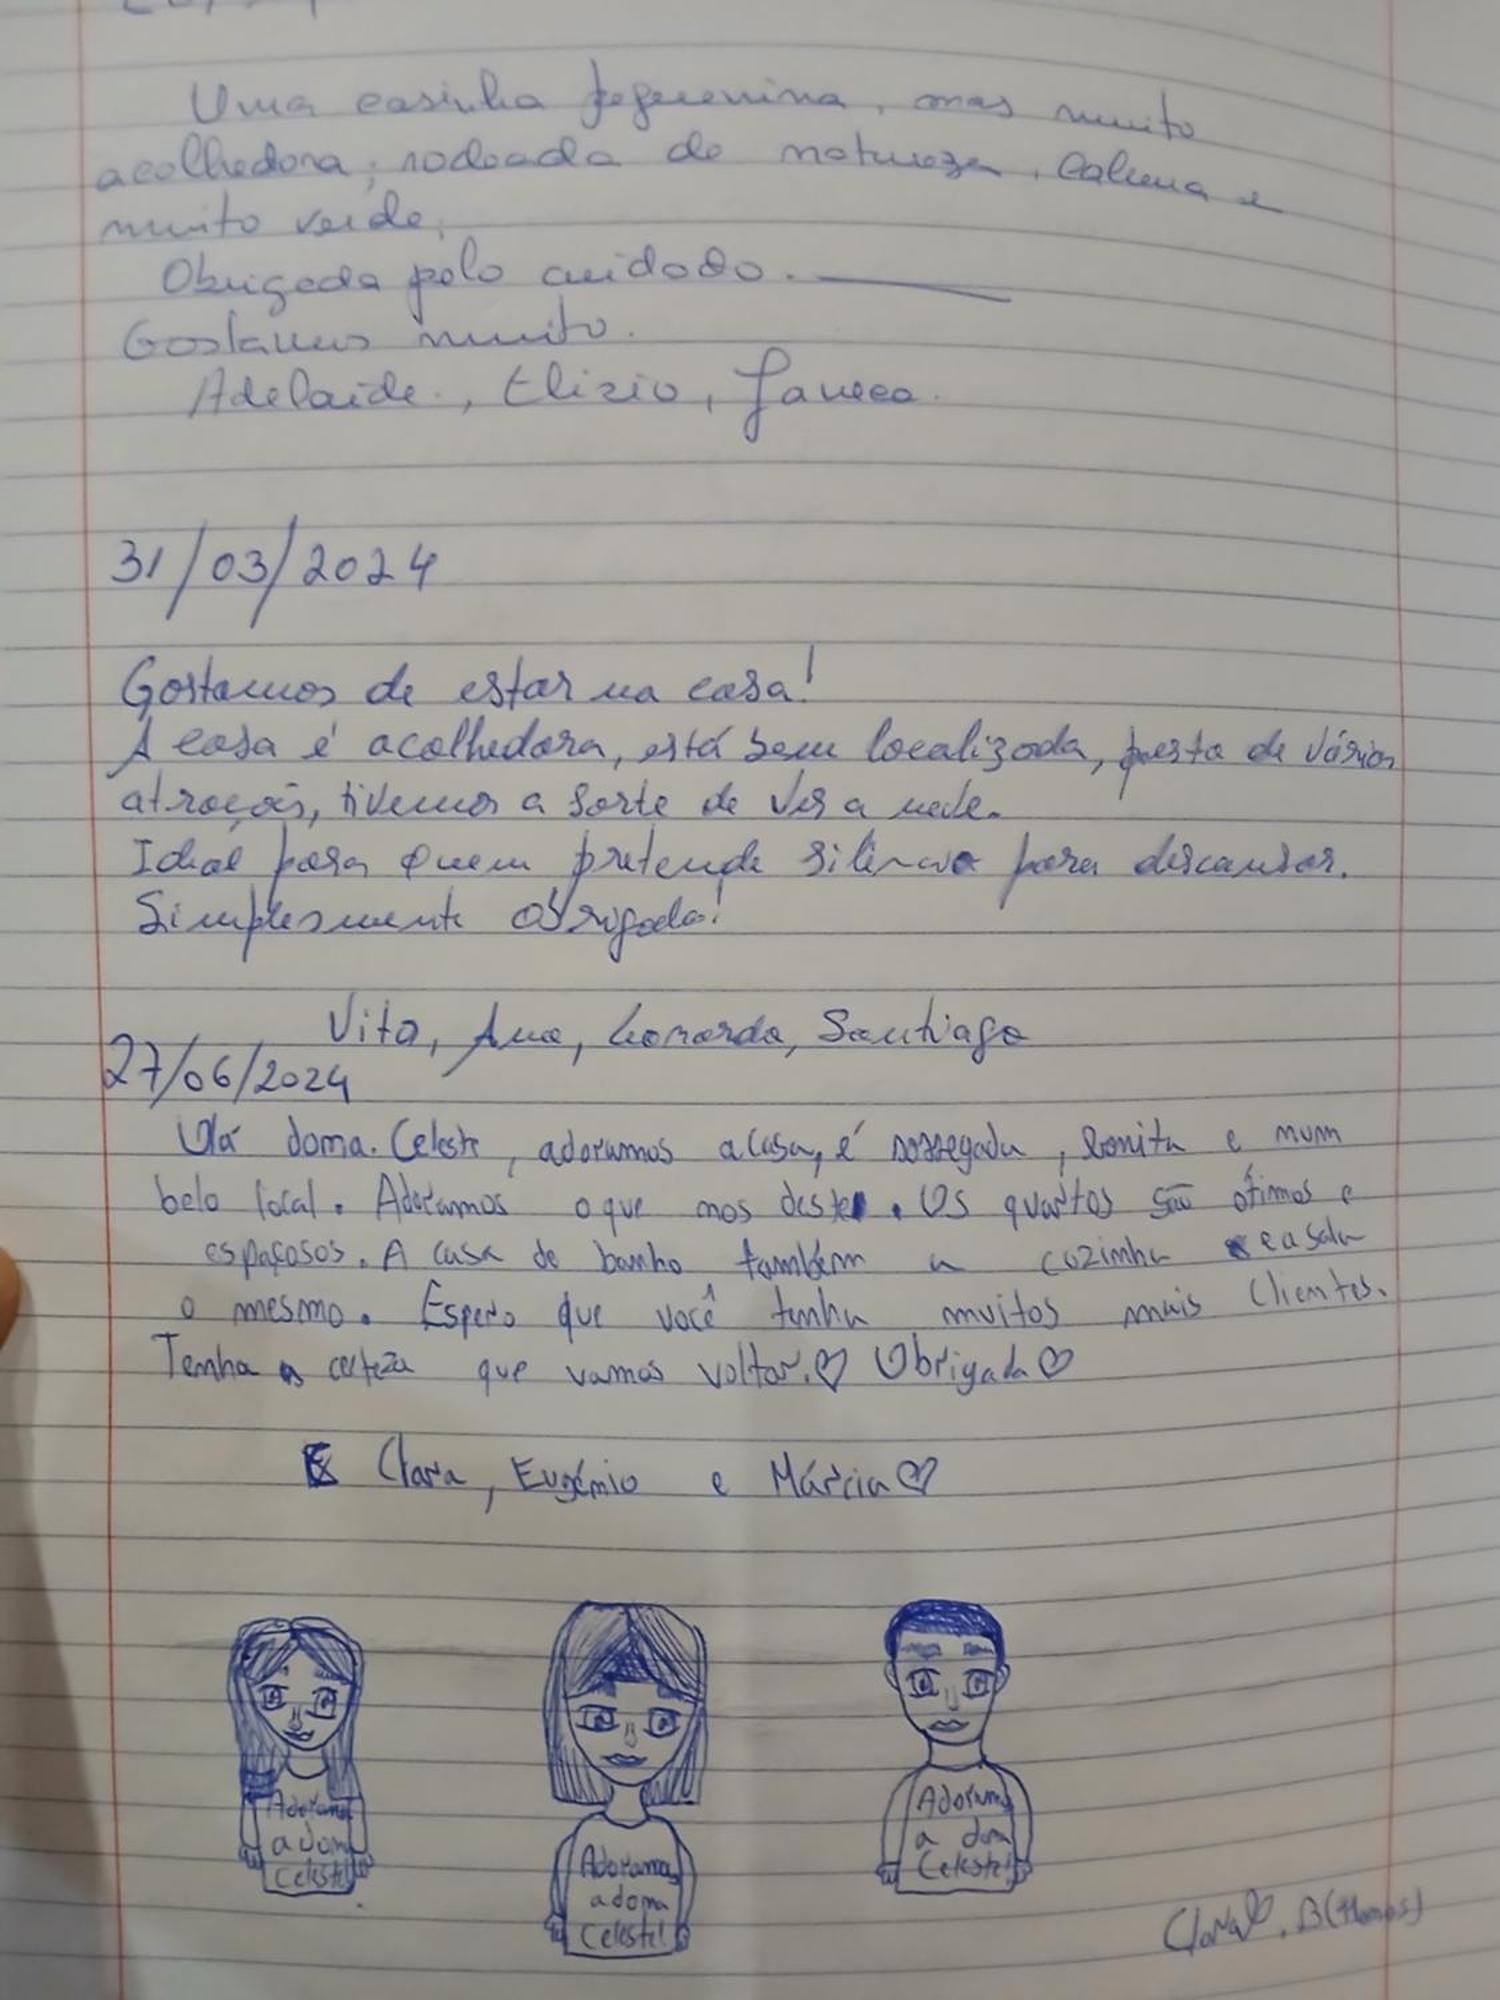 Uma casinha pequenina, mas muito
acolhedora, rodeada de natureza, calma e
muito verde.
Obrigada pelo cuidado.
Gostamos muito.
Adelaide, Elizio,
31/03/2024
Gostamos de estar na casa!
A casa é acolhedora, está bem localizada, perto de vários
atrações, tivemos a sorte de ver a neve.
Ideal para quem pretende silêncio para descansar.
Simplesmente obrigada!
Vito, Ana, Leonardo, Santiago
27/06/2024
Olá dona. Celeste, adoramos a casa, é sossegada, bonita e num
belo local. Adoramos o que nos deste. Os quartos são ótimos e
espaçosos. A casa de banho também a cozinha e a sala
o mesmo. Espero que você tenha muitos mais clientes.
Tenha a certeza que vamos voltar.♡ Obrigada♡
Clara, Eugénio e Márcia♡
Adoramos
a dona
Celeste!
Adoramos
a dona
Celeste!
Adoramos
a dona
Celeste!
Clara♡. (11anos)